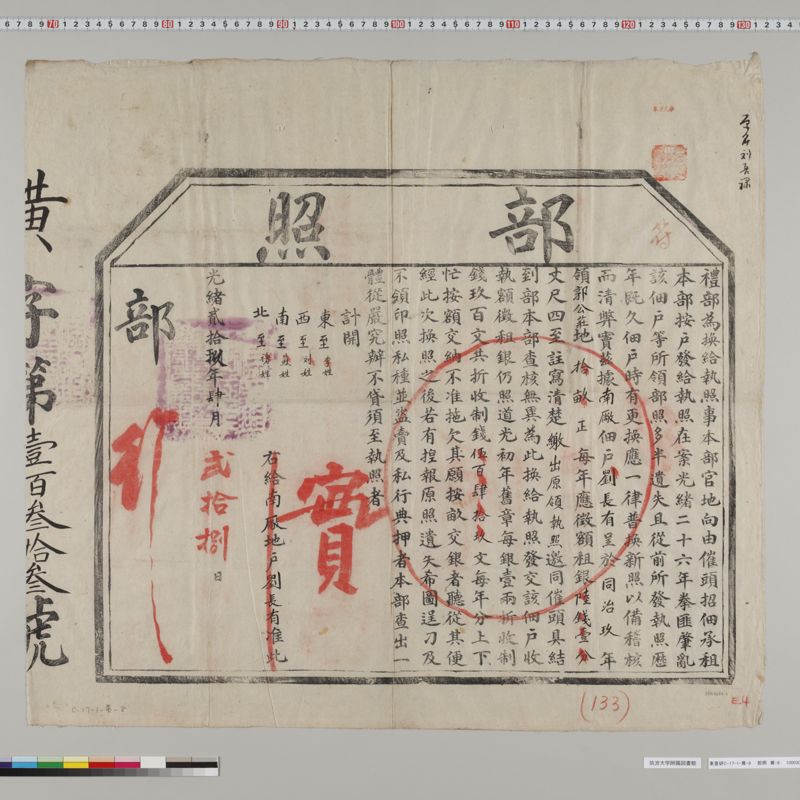 部照
禮部為換給執照事本部官地向由催頭招佃承租
本部按戶發給執照在案光緒二十六年拳匪肇亂
該佃戶等所領部照多半遺失且從前所發執照歷
年既久佃戶時有更換應一律普換新照以備稽核
而清弊實茲據南厰佃戶劉長有呈於同治玖年
領郭公莊地拾畝正每年應徵額租銀陸錢壹分
丈尺四至註寫清楚繳出原領執照邀同催頭具結
到部本部查核無異為此換給執照發交該佃戶收
執額徵租銀仍照道光初年舊章每銀壹兩折收制
錢玖百文共折收制錢伍百肆拾玖文每年分上下
忙按額交納不准拖欠其願按畝交銀者聽從其便
經此次換照之後若有揑報原照遺失希圖逞刁及
不領印照私種並盜賣及私行典押者本部查出一
體從嚴究辦不貸須至執照者
計開
東至李姓
西至刘姓
南至
北至
右給南厰地戶劉長有准此
光緒貳拾玖年肆月貳拾捌日
部
行
實
符
黄字第壹百叁拾叁號
(133)
E.4
C-17-1-黄-8
筑波大学附属図書館